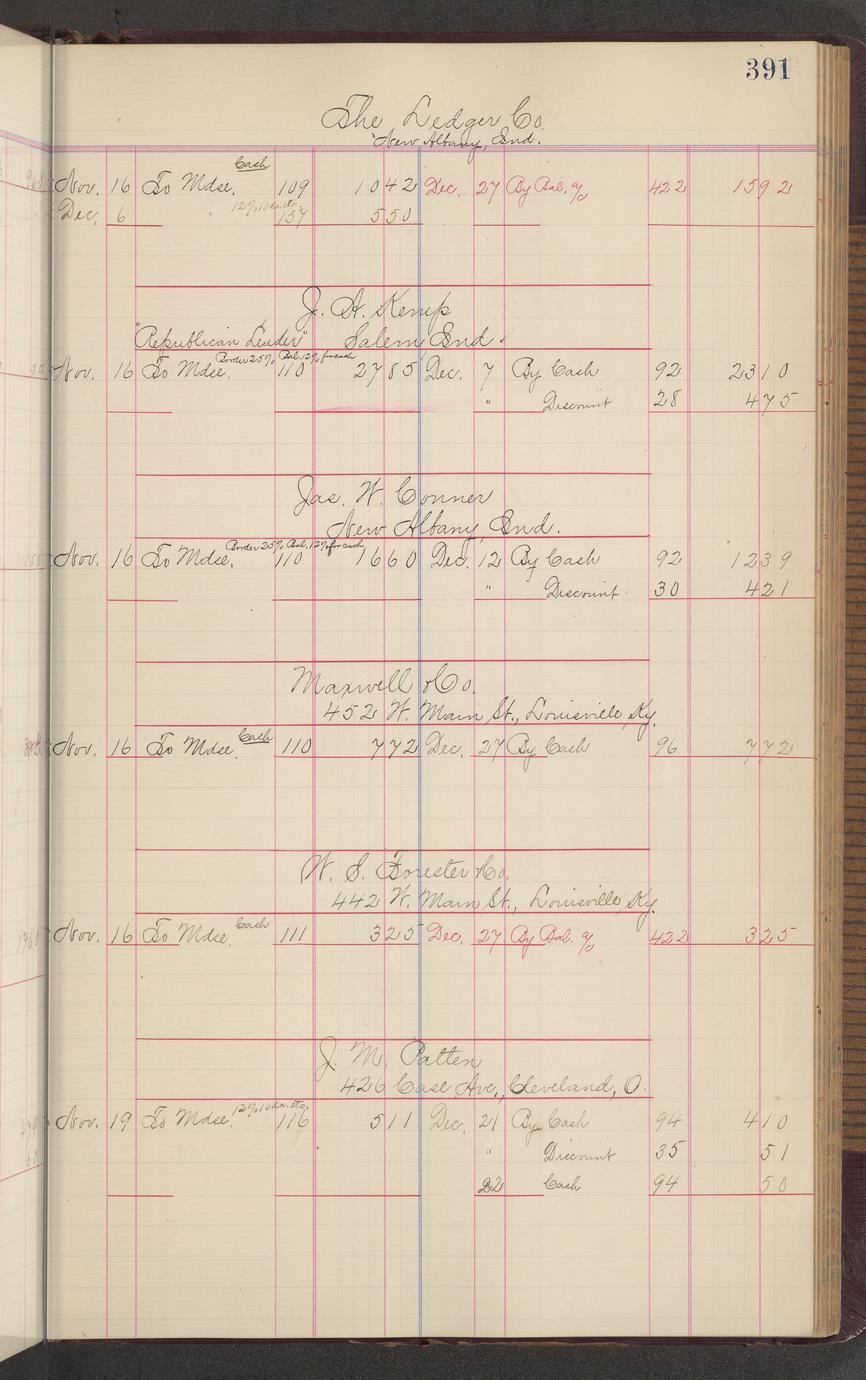 391
The Ledger Co.
New Albany, Ind.
Cash
Nov. 16 To Mdse. 109 1042 Dec. 27 By Bal. % 422 1592
12% 10 da. etc.
Dec. 6 " 157 550
J. H. Kemp
"Republican Leader" Salem Ind.
Border 25% Bal. 12% for cash
Nov. 16 To Mdse. 110 2785 Dec. 7 By Cash 92 2310
" Discount 28 475
Jas. W. Conner
New Albany, Ind.
Border 25% Bal. 12% for cash
Nov. 16 To Mdse. 110 1660 Dec. 12 By Cash 92 1239
" Discount 30 421
Maxwell & Co.
452 W. Main St., Louisville, Ky.
Cash
Nov. 16 To Mdse. 110 772 Dec. 27 By Cash 96 772
W. S. Forester & Co.
442 W. Main St., Louisville, Ky.
Cash
Nov. 16 To Mdse. 111 325 Dec. 27 By Bal. % 422 325
J. M. Patten
426 Case Ave., Cleveland, O.
12% 10 da. etc.
Nov. 19 To Mdse. 116 511 Dec. 21 By Cash 94 410
" Discount 35 51
22 Cash 94 50